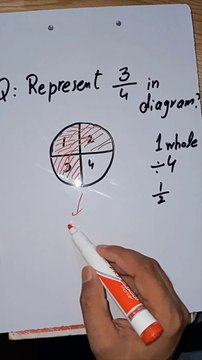 Q: Represent 3/4 in
diagram?
1 2
3 4
1 whole
÷4
1/2